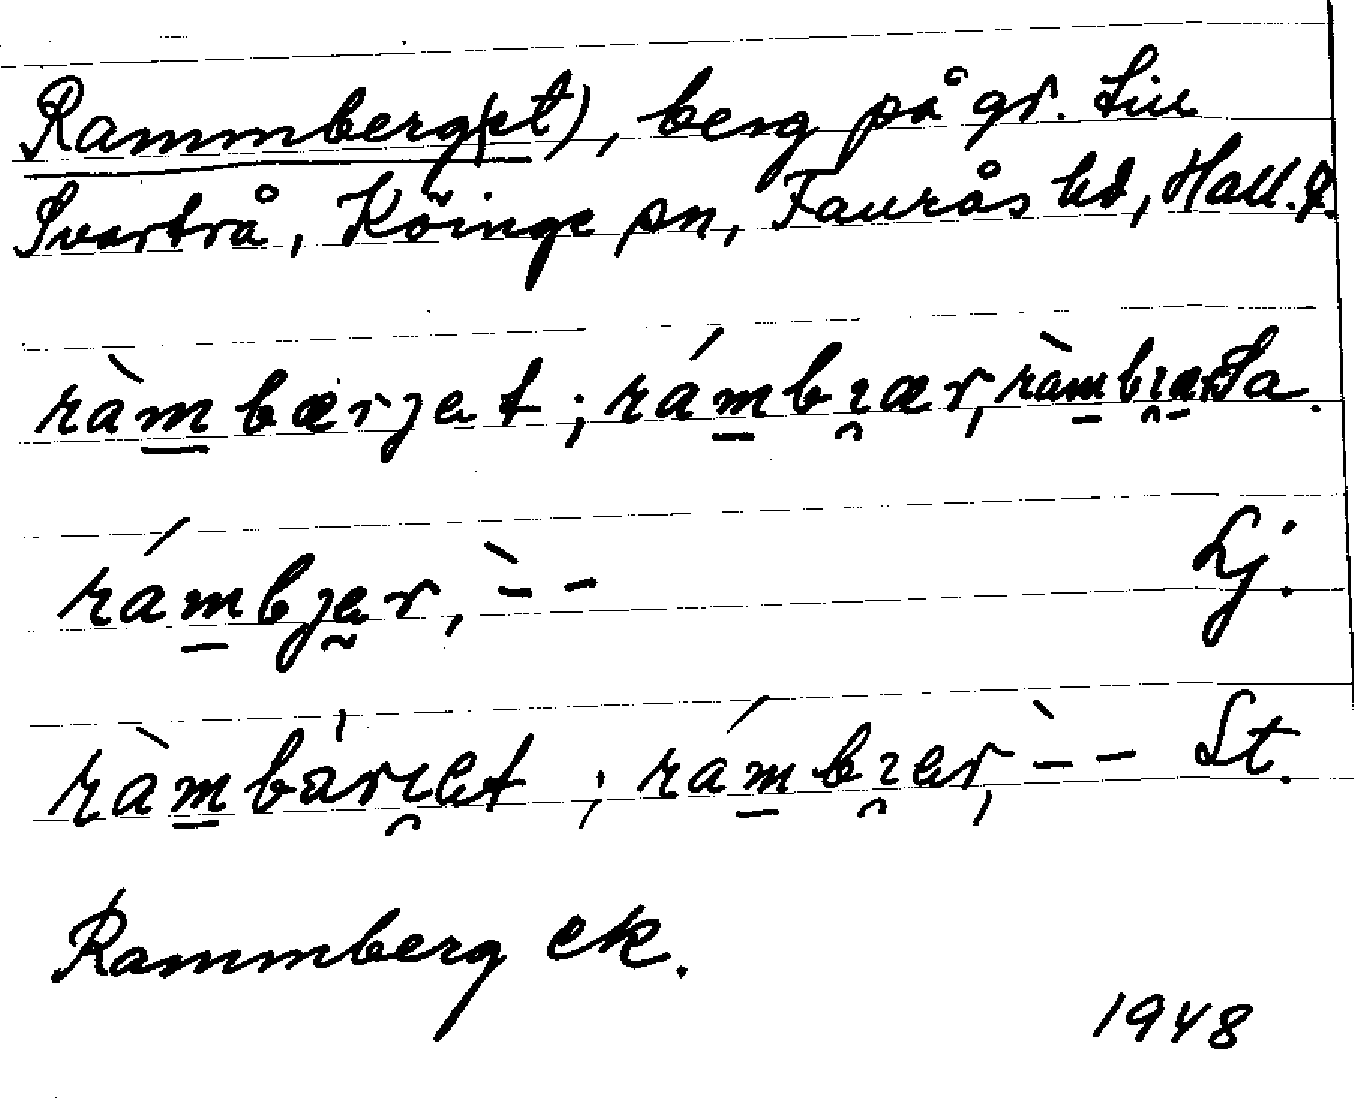 Rammberg(et), berg på gr. till
Svartrå, Köinge sn, Faurås hd, Hall. l.
ràm̲bærjet; rám̲bı̯ær, ràm̲bı̯ær Sa.
rám̲bjer, `– –  Lj.
ràm̲bär̍ı̯et; rám̲bı̯er, `– –  St.
Rammberg ek.
1948